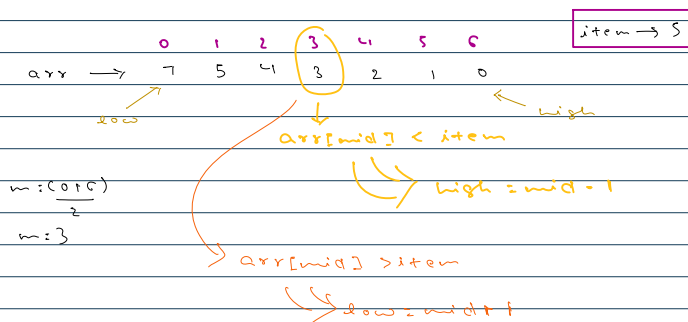 item → 5
0 1 2 3 4 5 6
arr → 7 5 4 3 2 1 0
low high
arr[mid] < item
m = (0+6)
2
high = mid - 1
m = 3
arr[mid] > item
low = mid + 1